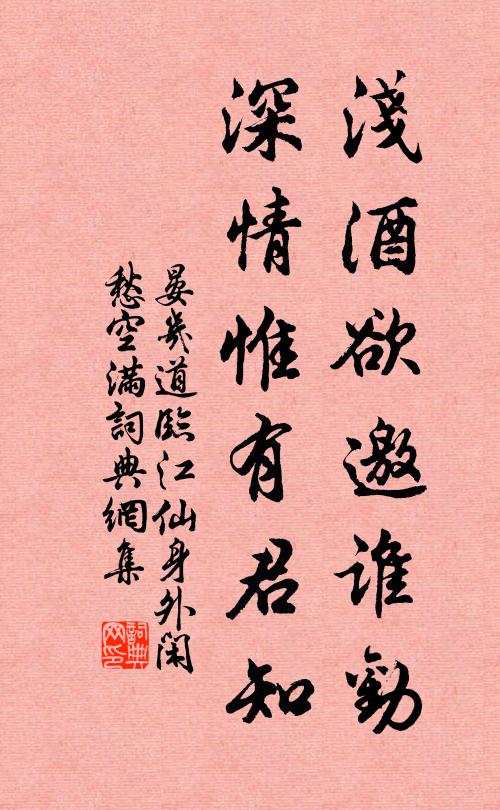 淺酒欲邀誰勸
深情惟有君知
晏幾道臨江仙身外閑
愁空滿詞典網集
詞典
网印